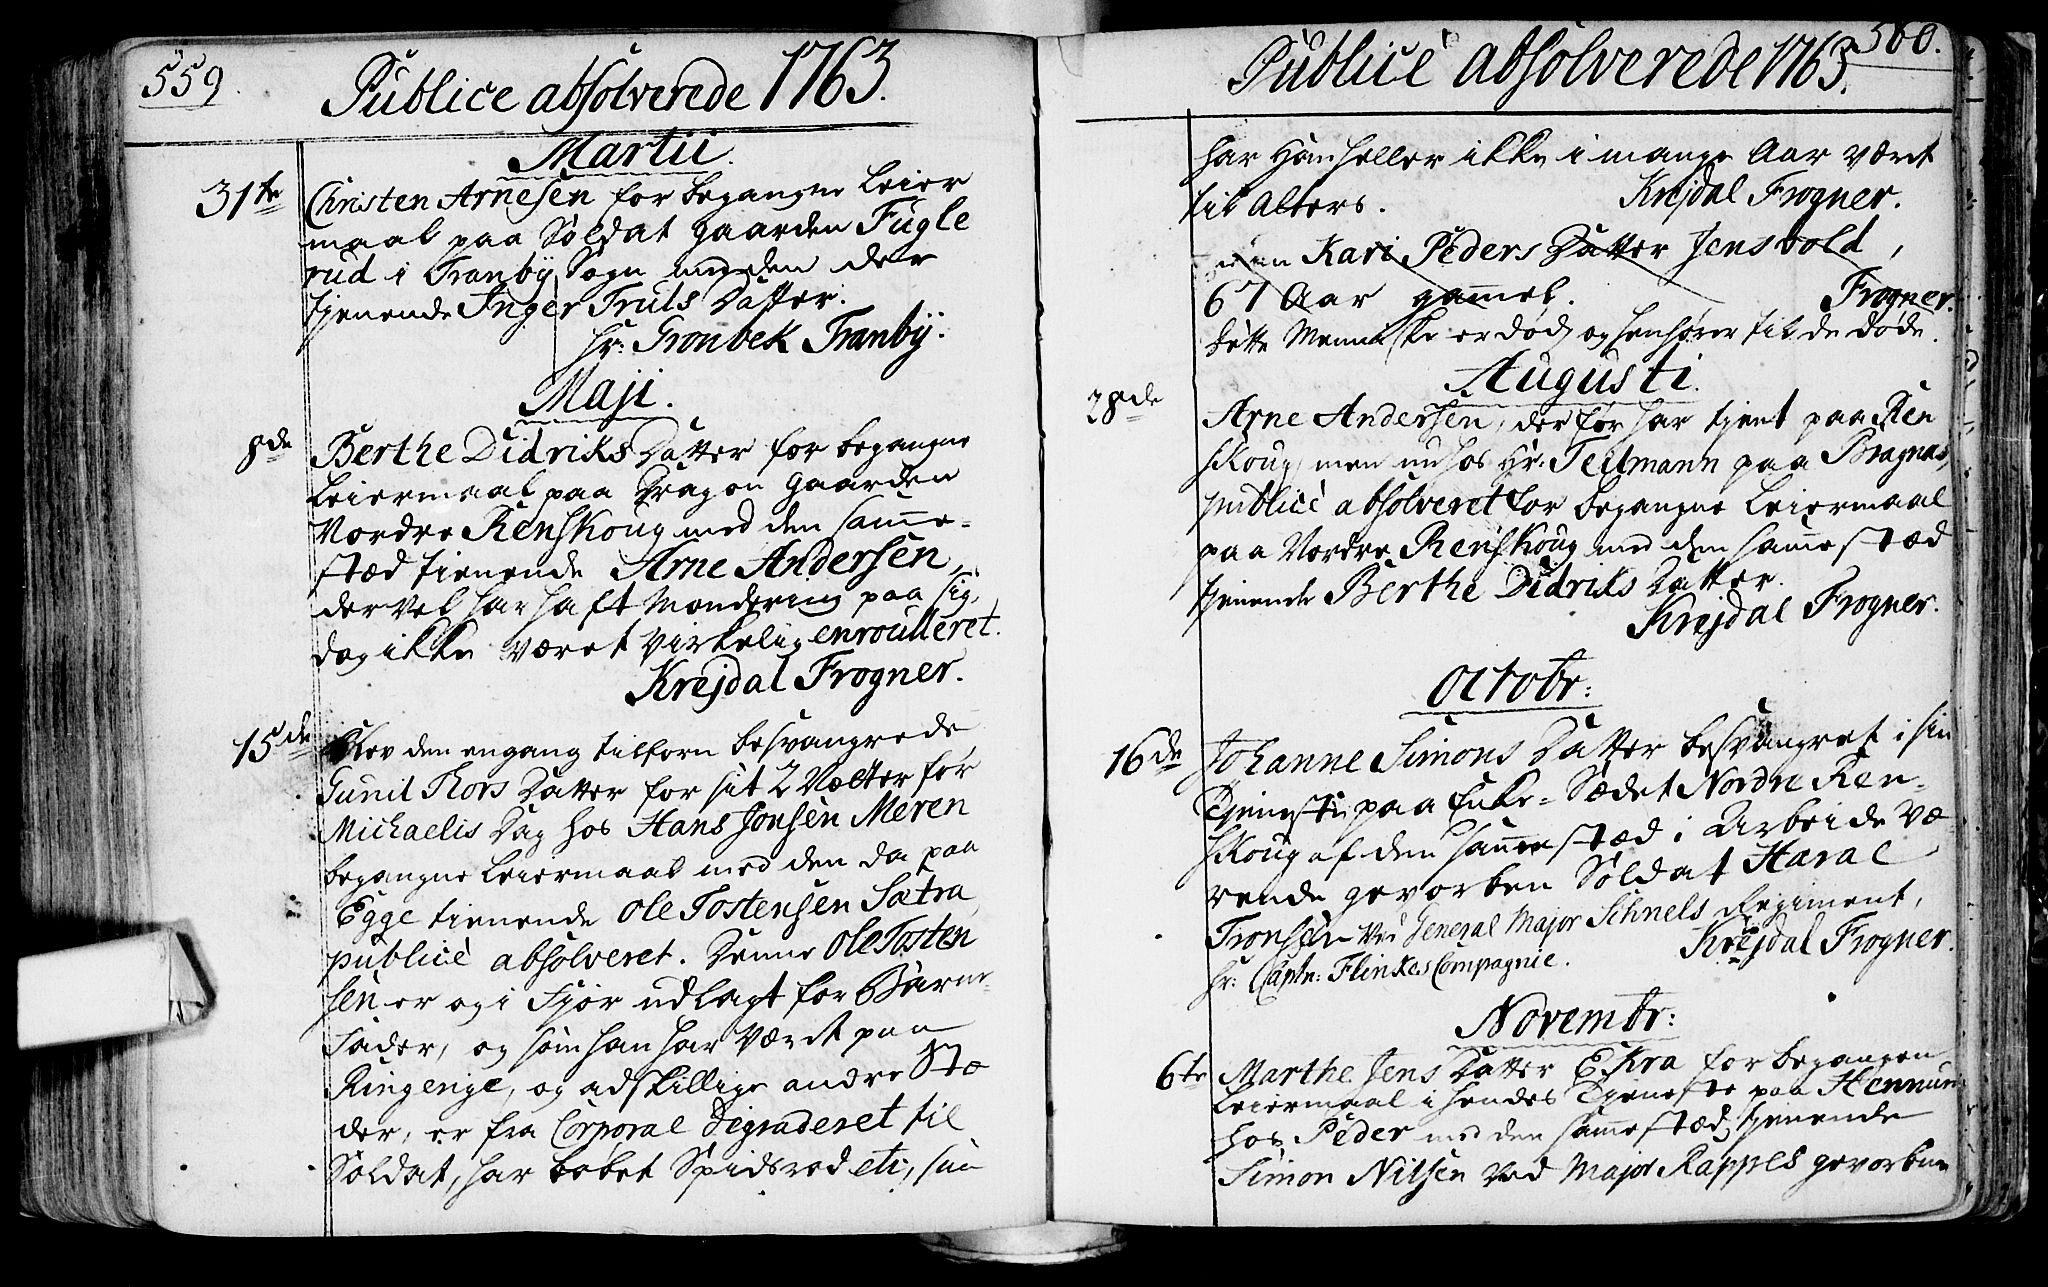 559.
Publice absolverede 1763.
Martii.
31te Christen Arnesen for begangne Leier
maal paa Soldat Gaarden Fugle
rud i Tranby Sogn med den der
tjenende Inger Truls Datter.
Hr: Gronbek Tranby.
Maji.
8de Berthe Didriks Datter for begangne
Leiermaal paa Dragon Gaarden
Nordre Renskoug med den samme-
stæd tienende Arne Andersen,
der vel har haft Mondering paa sig,
dog ikke været virkelig enroulleret.
Krejdal Frogner.
15de Blev den engang tilforn besvangrede
Gunil Thors Datter for sit 2 Nætter før
Michaelis Dag hos Hans Jonsen Meren
begangne Leiermaal med den da paa
Egge tienende Ole Tostensen Sætra,
publicè absolveret. Denne Ole Tosten
sen er og i Fjor udlagt for Barne-
fader, og som han har været paa
Ringerige, og adskillige andre Stæ
der, er fra Corporal degraderet til
Soldat, har løbet Spidsrod etc, saa
560.
Publicè absolverede 1763.
har han heller ikke i mange Aar været
til Alters. Krejdal Frogner.
Kari Peders Datter Jensvold,
67 Aar gammel. Frogner.
Dette Menniske er død, og henhører til de døde.
Augusti.
28de Arne Andersen, der før har tjent paa Ren
skoug, men nu hos Hr. Teilmann paa Bragnæs,
publicè absolveret for begangne Leiermaal
paa Nordre Renskoug med den sammestæd
tjenende Berthe Didriks Datter.
Krejdal Frogner.
Octobr:
16de Johanne Simons Datter besvangret i sin
Tjeneste paa Enke-Sædet Nordre Ren-
skoug af den sammestæd i Arbeide væ-
rende gevorben Soldat Haral
Tronsen ved General Major Schnels Regiment,
Hr: Captn: Flinkes Compagnie. Krejdal Frogner.
Novembr:
6te Marthe Jens Datter Eskra for begangen
Leiermaal i hendes Tjeneste paa Hennum
hos Peder med den sammestæd tjenende
Simon Nilsen ved Major Rappes gevorbne